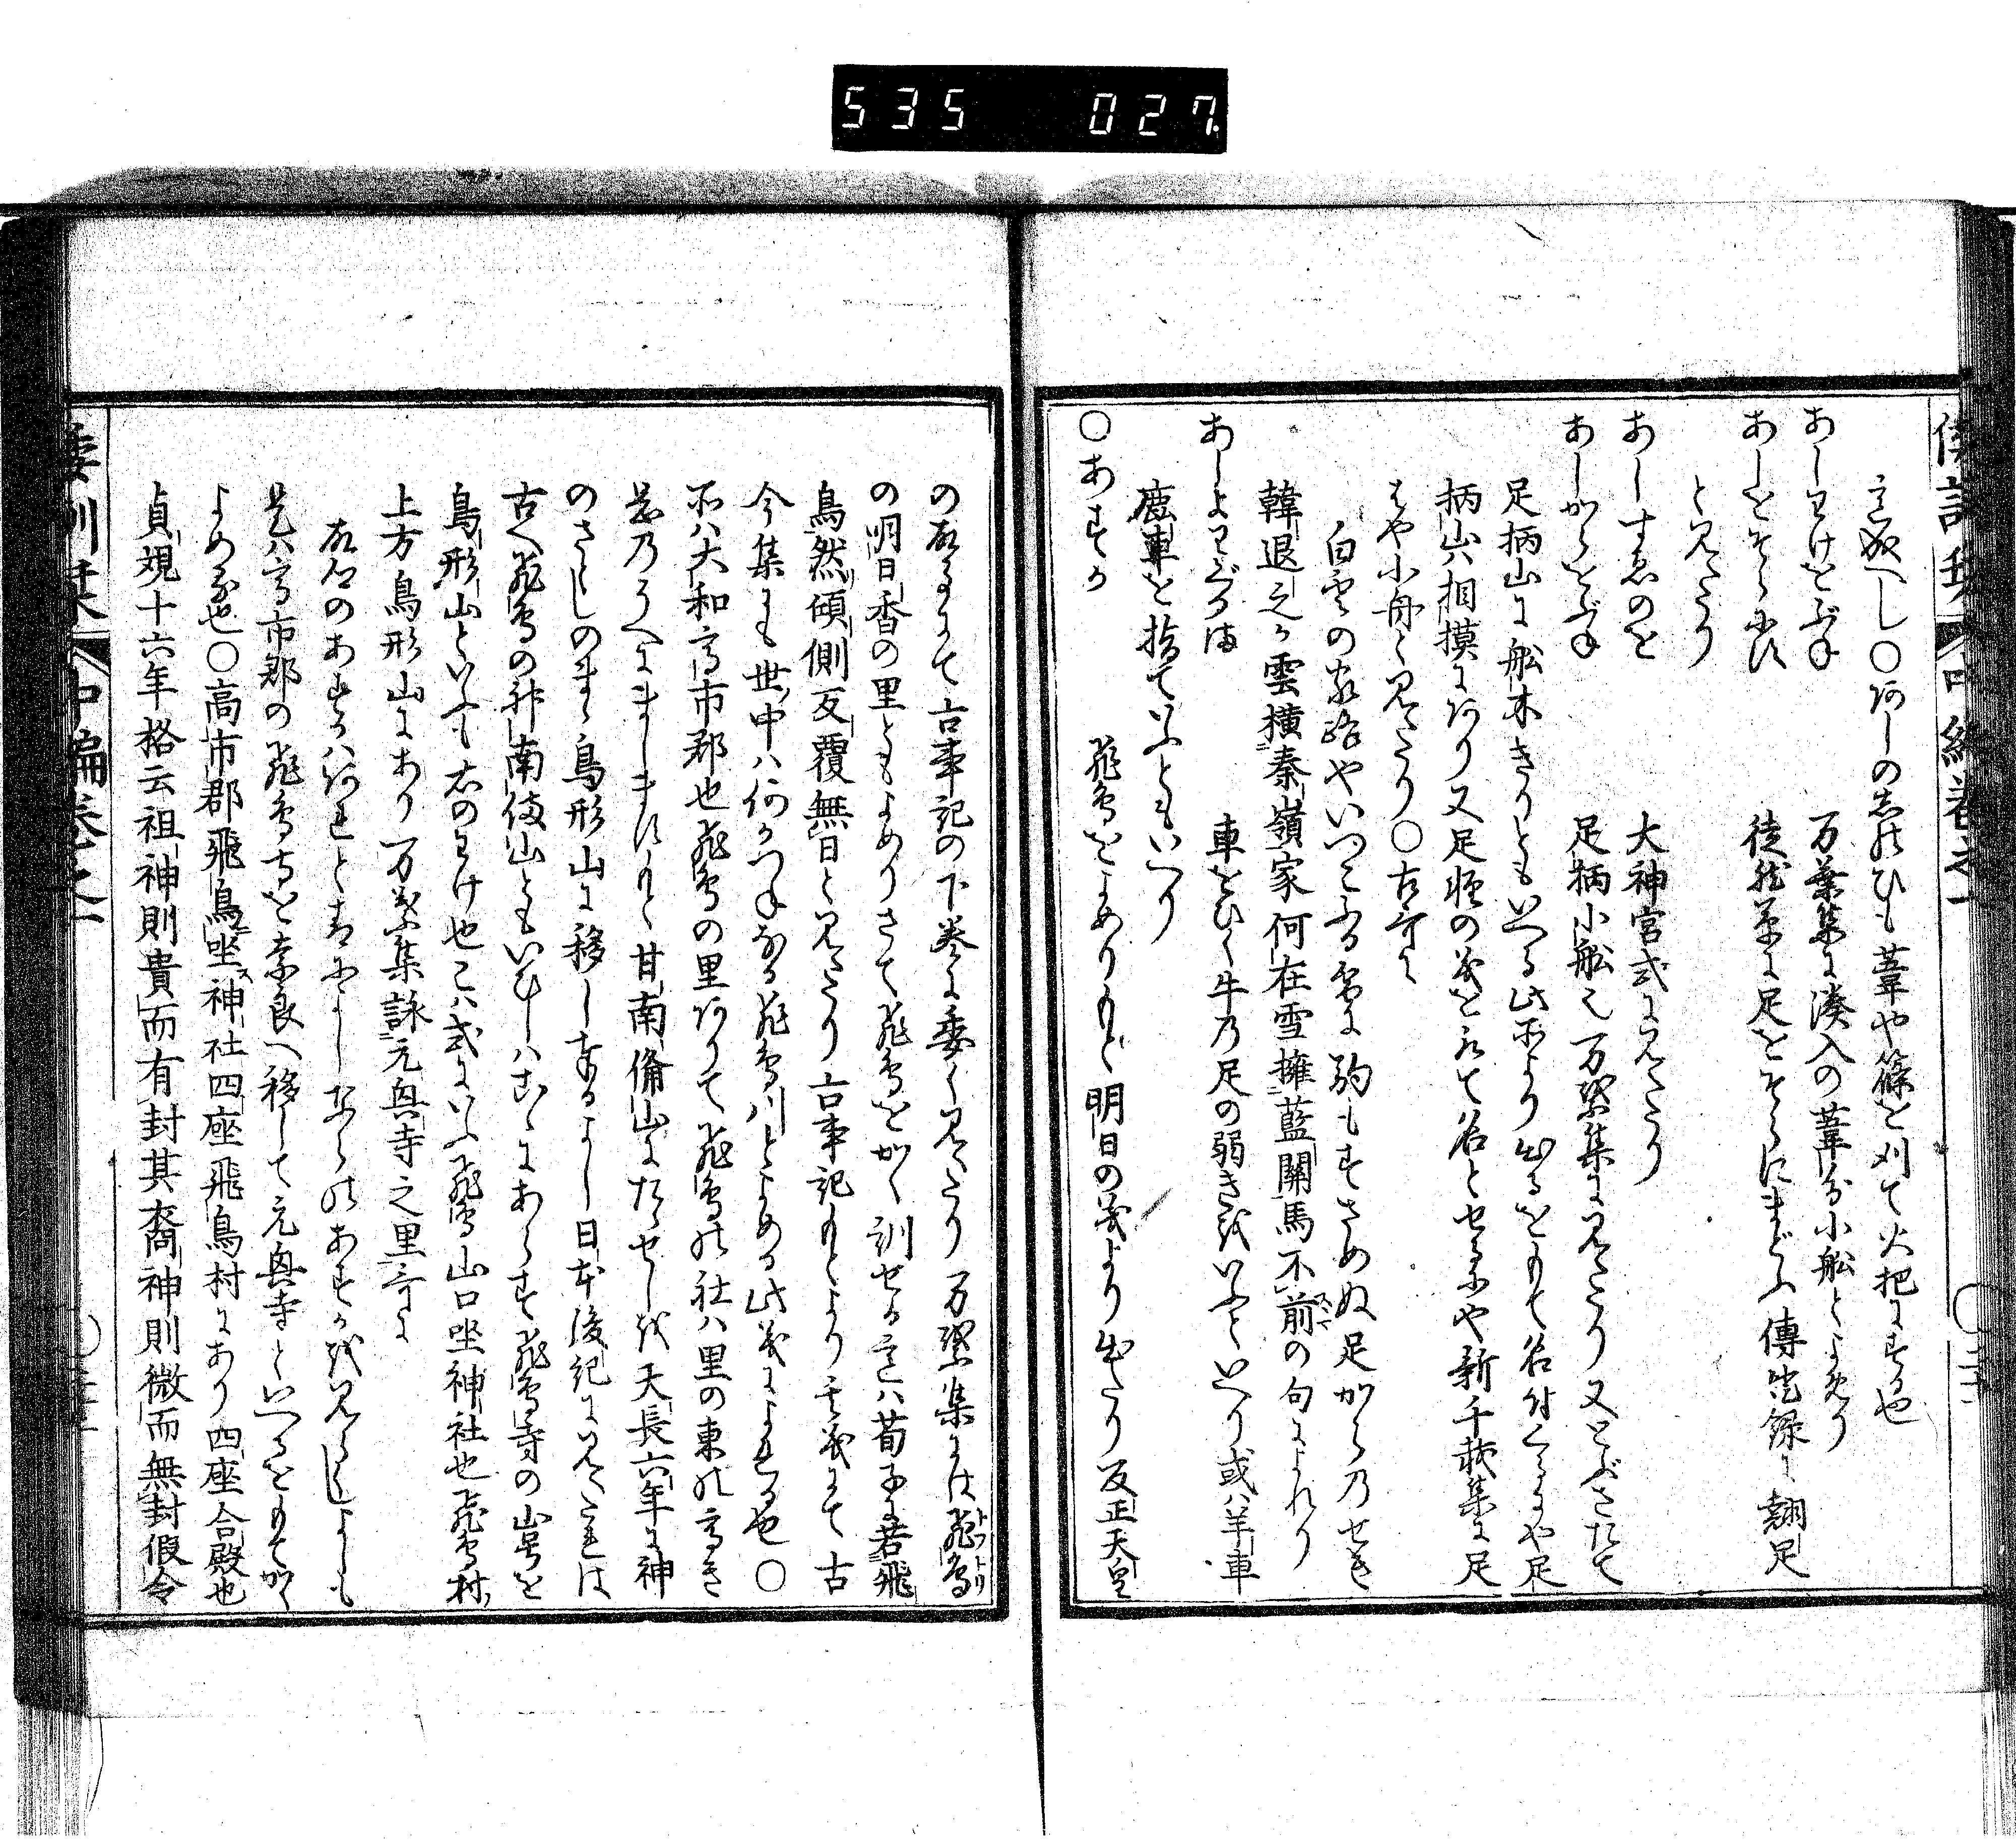 535 027
倭訓栞 中編巻之一
言成へし〇阿しの志のひも葦や篠を刈て火把にする也
あしわけをぶね 万葉集に湊入の葦分小船とよめり
あしをそらに 徒然草に足をそらにまどふ傳燈録に翹足
と見えたり
あしすゑのを 大神宮式に見えたり
あしがらをぶね 足柄小船也万葉集に見えたり又とぶさたて
足柄山に船木きりともいへる此所より出るをもて名付くるにや足
柄山ハ相摸にあり又足軽の義を永て名とせるにや新千載集に足
はや小舟と見えたり〇古哥に
白雲の家路やいつこふる雪に駒もすさめぬ足がらのせき
韓退之か雲横秦嶺家何在雪擁藍關馬不前の句によれり
あしよわぐるま 車をひく牛の足の弱きをいふといへり或ハ羊車
鹿車を指ていふともいへり
〇あすか 飛鳥をよめりもと明日の義より出たり反正天皇
の故事にて古事記の下巻に委く見えたり万葉集には飛鳥トフトリ
の明日香の里ともよめりさて飛鳥をかく訓せる言ハ荀子に若飛
鳥然傾側反覆無日と見えたり古事記もとより其義にて古
今集にも世ノ中ハ何かつねなる飛鳥川とよめる此義によれる也〇
所ハ大和高市郡也飛鳥の里ありて飛鳥の社ハ里の東の高き
岳のうへにましますもと甘南備山にたゝせしを天長六年に神
のさとしのまゝ鳥形山に移し奉るよし日本後紀に見えたれは
古へ飛鳥の神南備山ともいひしハこゝにあらす飛鳥寺の山号を
鳥形山といふも右のわけ也こハ式にいふ飛鳥山口坐神社也飛鳥村ノ
上方鳥形山にあり万葉集詠元興寺之里哥に
故郷のあすかハあれと青によしならのあすかを見らくしよしも
是ハ高市郡の飛鳥寺を奈良へ移して元興寺といへるをもてかく
よめる也〇高市郡飛鳥ニ坐ス神社四座飛鳥村にあり四座合殿也
貞観十六年格云祖神則貴而有封其裔神則微而無封假令
倭訓栞 中編巻之一